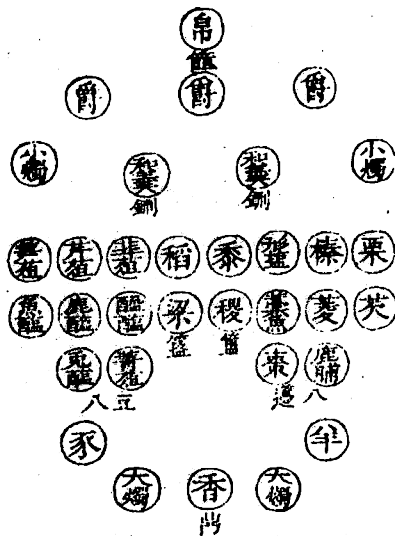 帛
篚
爵 爵 爵
小燭 和羹 和羹 小燭
鉶 鉶
芹菹 韭菹 稻 黍 形鹽 榛 栗
魚醢 鹿醢 醓醢 梁 稷 菱 芡
簠 簋
兔醢 菁菹 棗 鹿脯
八豆 籩八
豕 羊
大燭 香 大燭